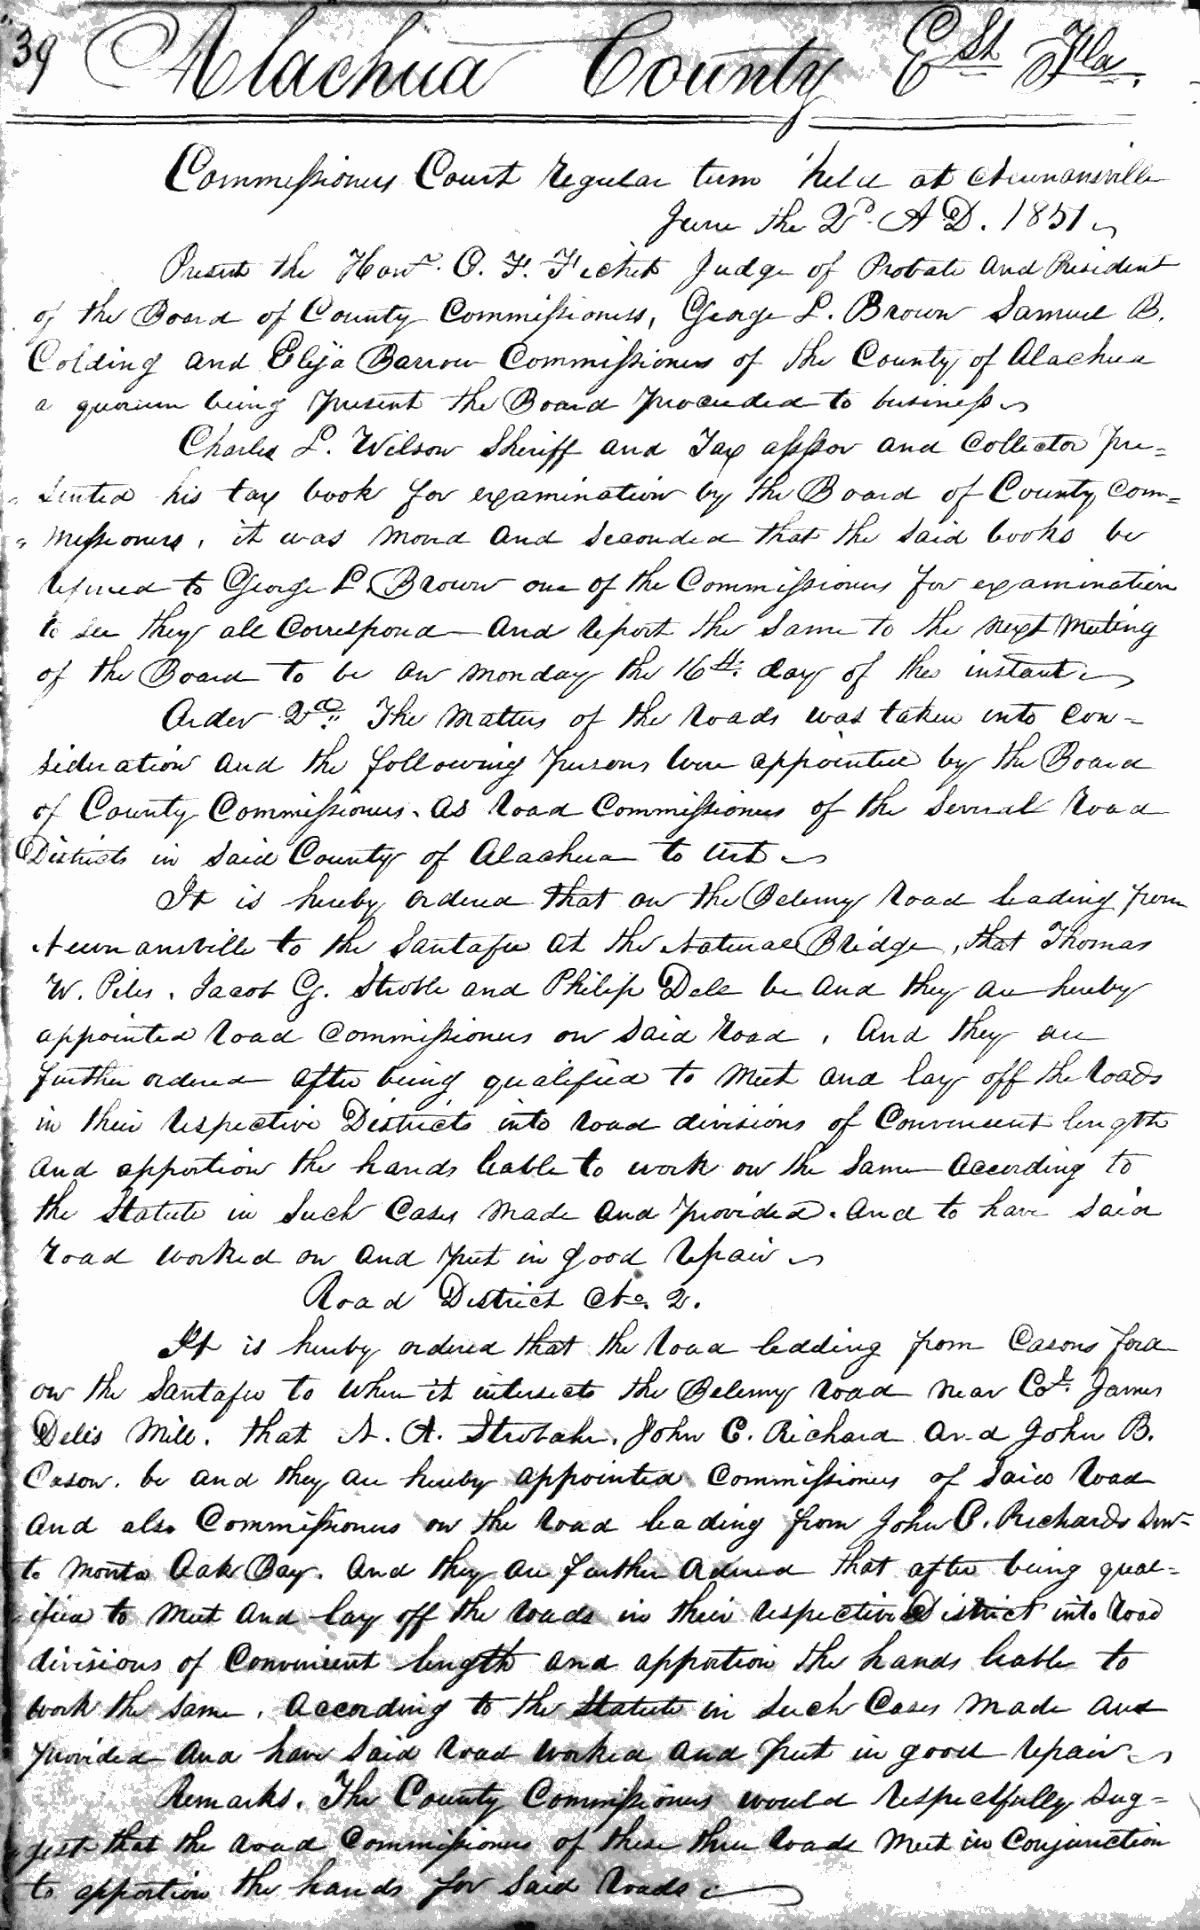 39 Alachua County Est Fla.
Commissioners Court regular term held at Newnansville
June the 2d. A D. 1851
Present the Honr. O. F. Fickett Judge of Probate and President
of the Board of County Commissioners, George L. Brown Samuel B.
Colding and Elija Barrow Commissioners of the County of Alachua
a quorum being present the Board proceeded to business
Charles L. Wilson Sheriff and Tax assor and Collector pre=
sented his tax book for examination by the Board of County Com=
=missioners, it was moved and seconded that the said books be
refured to George L. Brown one of the Commissioners for examination
to see they all Correspond and report the Same to the next Meeting
of the Board to be on Monday the 16th. day of this instant
Order 2d. The Matters of the roads was taken into Con=
sideration and the following persons were appointed by the Board
of County Commissioners as road Commissioners of the Several road
Districts in Said County of Alachua to wit
It is hereby ordered that on the Belemy road leading from
Newnansville to the Santafee at the Natural Bridge, that Thomas
W. Piles, Jacob G. Stroble and Philip Dell be and they are hereby
appointed road Commissioners on Said road, And they are
further ordered after being qualified to Meet and lay off the roads
in their respective Districts into road divisions of Convenient length
and apportion the hands leable to work on the Same According to
the Statute in Such Cases Made and provided. And to have said
road worked on and put in good repair
Road District No. 2.
It is hereby ordered that the road ledding from Casons ford
on the Santafee to When it intersects the Belemy road near Col. James
Dells Mill. that N. A. John C. Richard and John B.
Cason. be and they are hereby appointed Commissioners of Said road
and also Commissioners on the road leading from John C. Richards
to Oak Bay. And they are further Ordered that after being qual=
ified to Meet and lay off the roads in their respective District into road
divisions of Convenient length and apportion the hands leable to
work the same. According to the Statute in Such Cases Made and
provided and have Said road worked and put in good repair
Remarks. The County Commissioners would respectfully Sug=
gest that the road Commissioners of these three roads Meet in Conjunction
to apportion the hands for Said roads